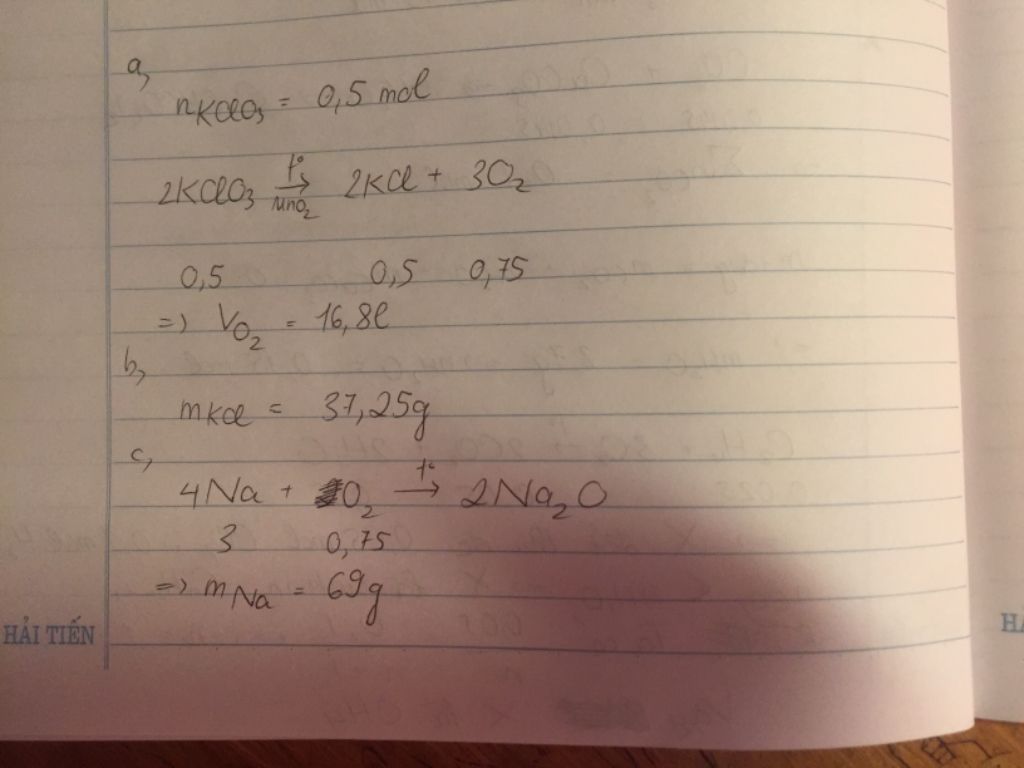 a,
nKClO3 = 0,5 mol
2KClO3 t° → MnO2 2KCl + 3O2
0,5 0,5 0,75
=> VO2 = 16,8l
b,
mKCl = 37,25g
c,
4Na + O2 t° → 2Na2O
3 0,75
=> mNa = 69g
HẢI TIẾN
HẢ